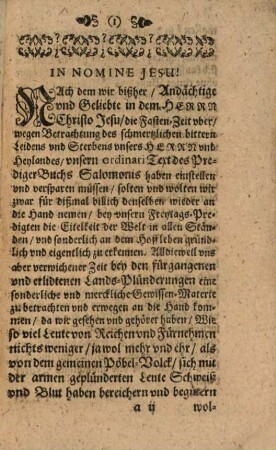 (1)
IN NOMINE JESU!
NAch dem wir bißher / Andächtige
vnd Geliebte in dem HERRN
Christo Jesu / die Fasten-Zeit vber /
wegen Betrachtung des schmertzlichen bittern
Leidens vnd Sterbens vnsers HERRN vnd
Heylandes / vnsern ordinari Text des Pre-
diger Buchs Salomonis haben einstellen
vnd versparen müssen / solten vnd wolten wir
zwar für dißmal billich denselben wieder an
die Hand nemen / bey vnsern Freytags-Pre-
digten die Eitelkeit der Welt in allen Stän-
den / vnd sonderlich an dem Hoffleben gründ-
lich vnd eigentlich zu erkennen. Alldieweil vns
aber verwichener Zeit bey den fürgangenen
vnd erlidtenen Lands-Plünderungen eine
sonderliche vnd merckliche Gewissen-Materie
zu betrachten vnd erwegen an die Hand kom-
men / da wir gesehen vnd gehöret haben / Wie
so viel Leute von Reichen vnd Fürnehmen
nichts weniger / ja wol mehr vnd ehr / als
von dem gemeinen Pöbel-Volck / sich mit
der armen geplünderten Leute Schweiß
vnd Blut haben bereichern vnd begütern
a ij wol-